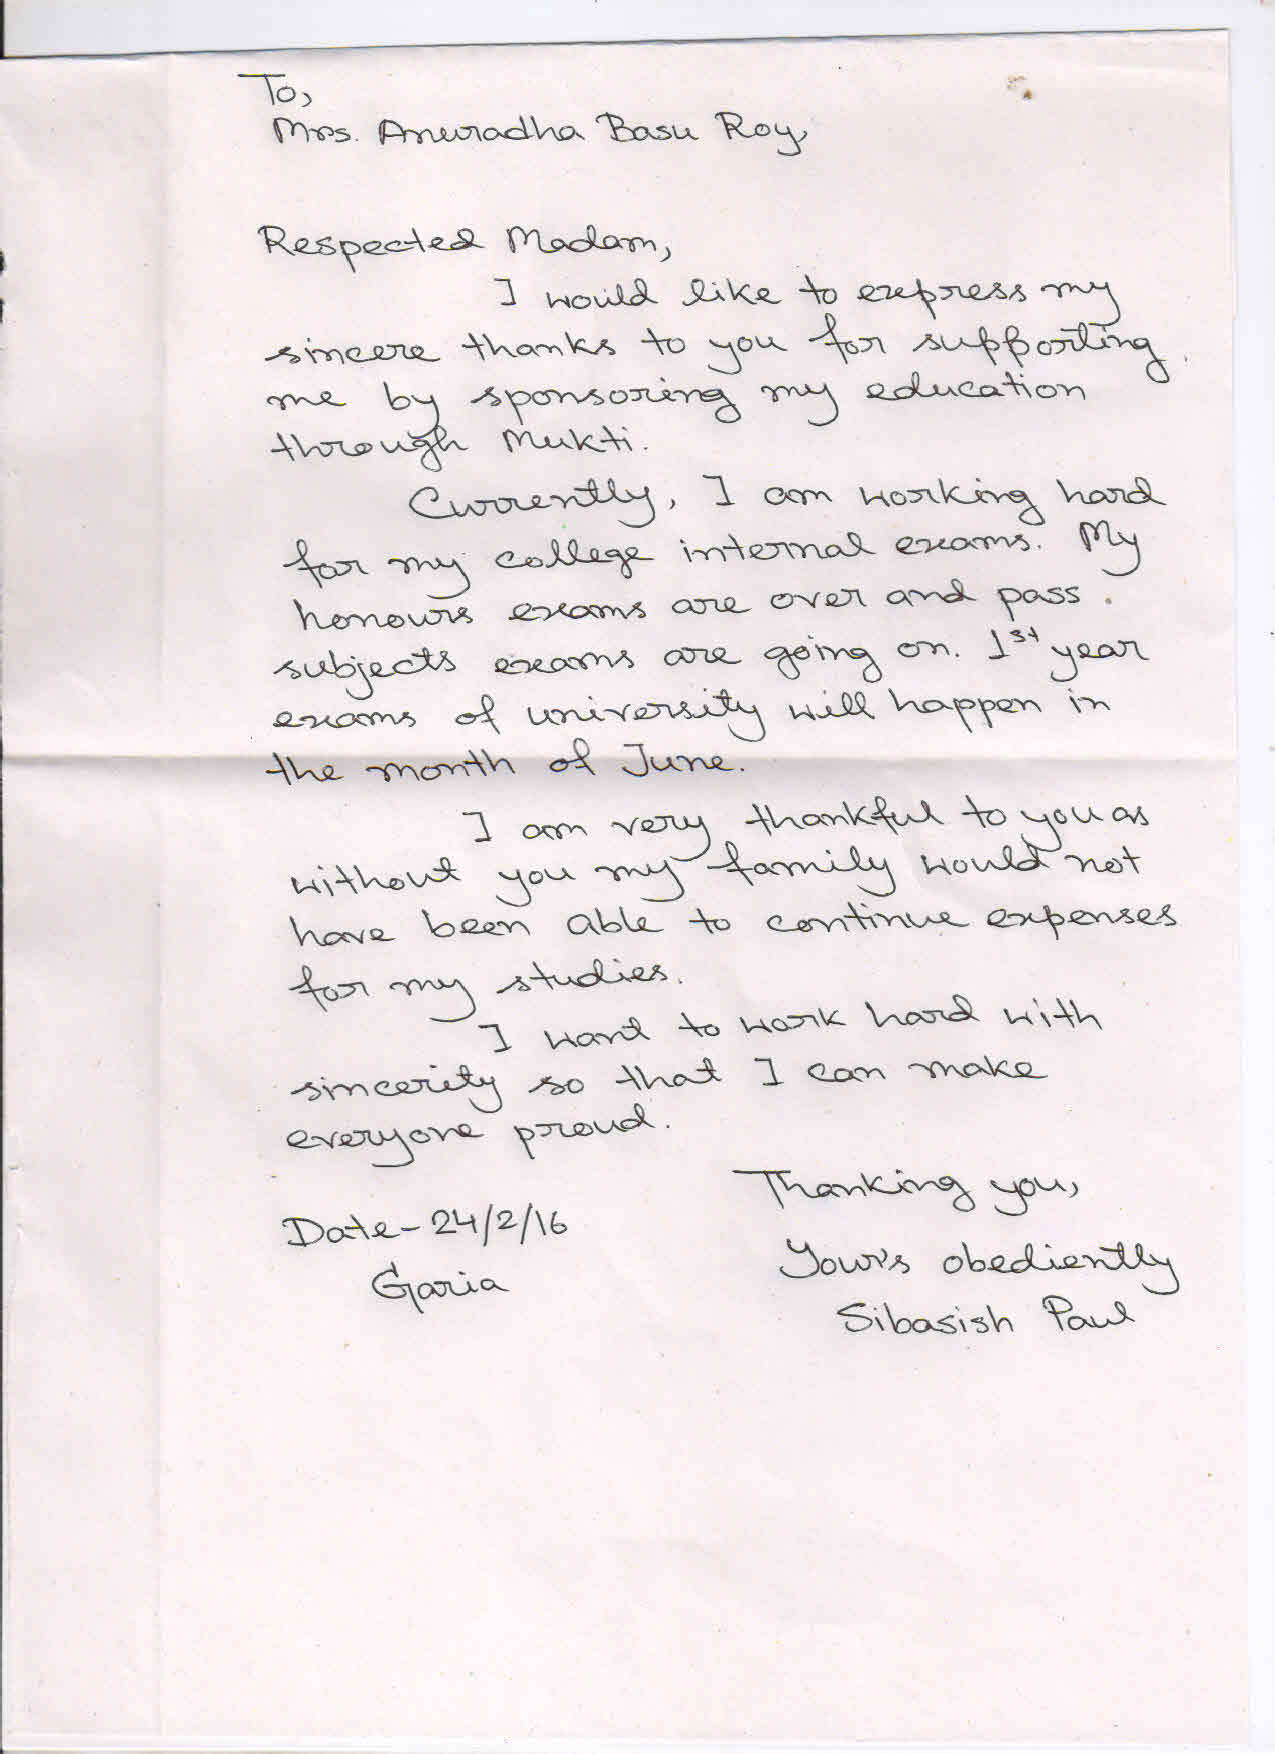 To,
Mrs. Anuradha Basu Roy,
Respected Madam,
I would like to express my
sincere thanks to you for supporting
me by sponsoring my education
through Mukti.
Currently, I am working hard
for my college internal exams. My
honours exams are over and pass
subjects exams are going on. 1st year
exams of university will happen in
the month of June.
I am very thankful to you as
without you my family would not
have been able to continue expenses
for my studies.
I want to work hard with
sincerity so that I can make
everyone proud.
Thanking you,
Date-24/2/16
Garia
Your's obediently
Sibasish Paul